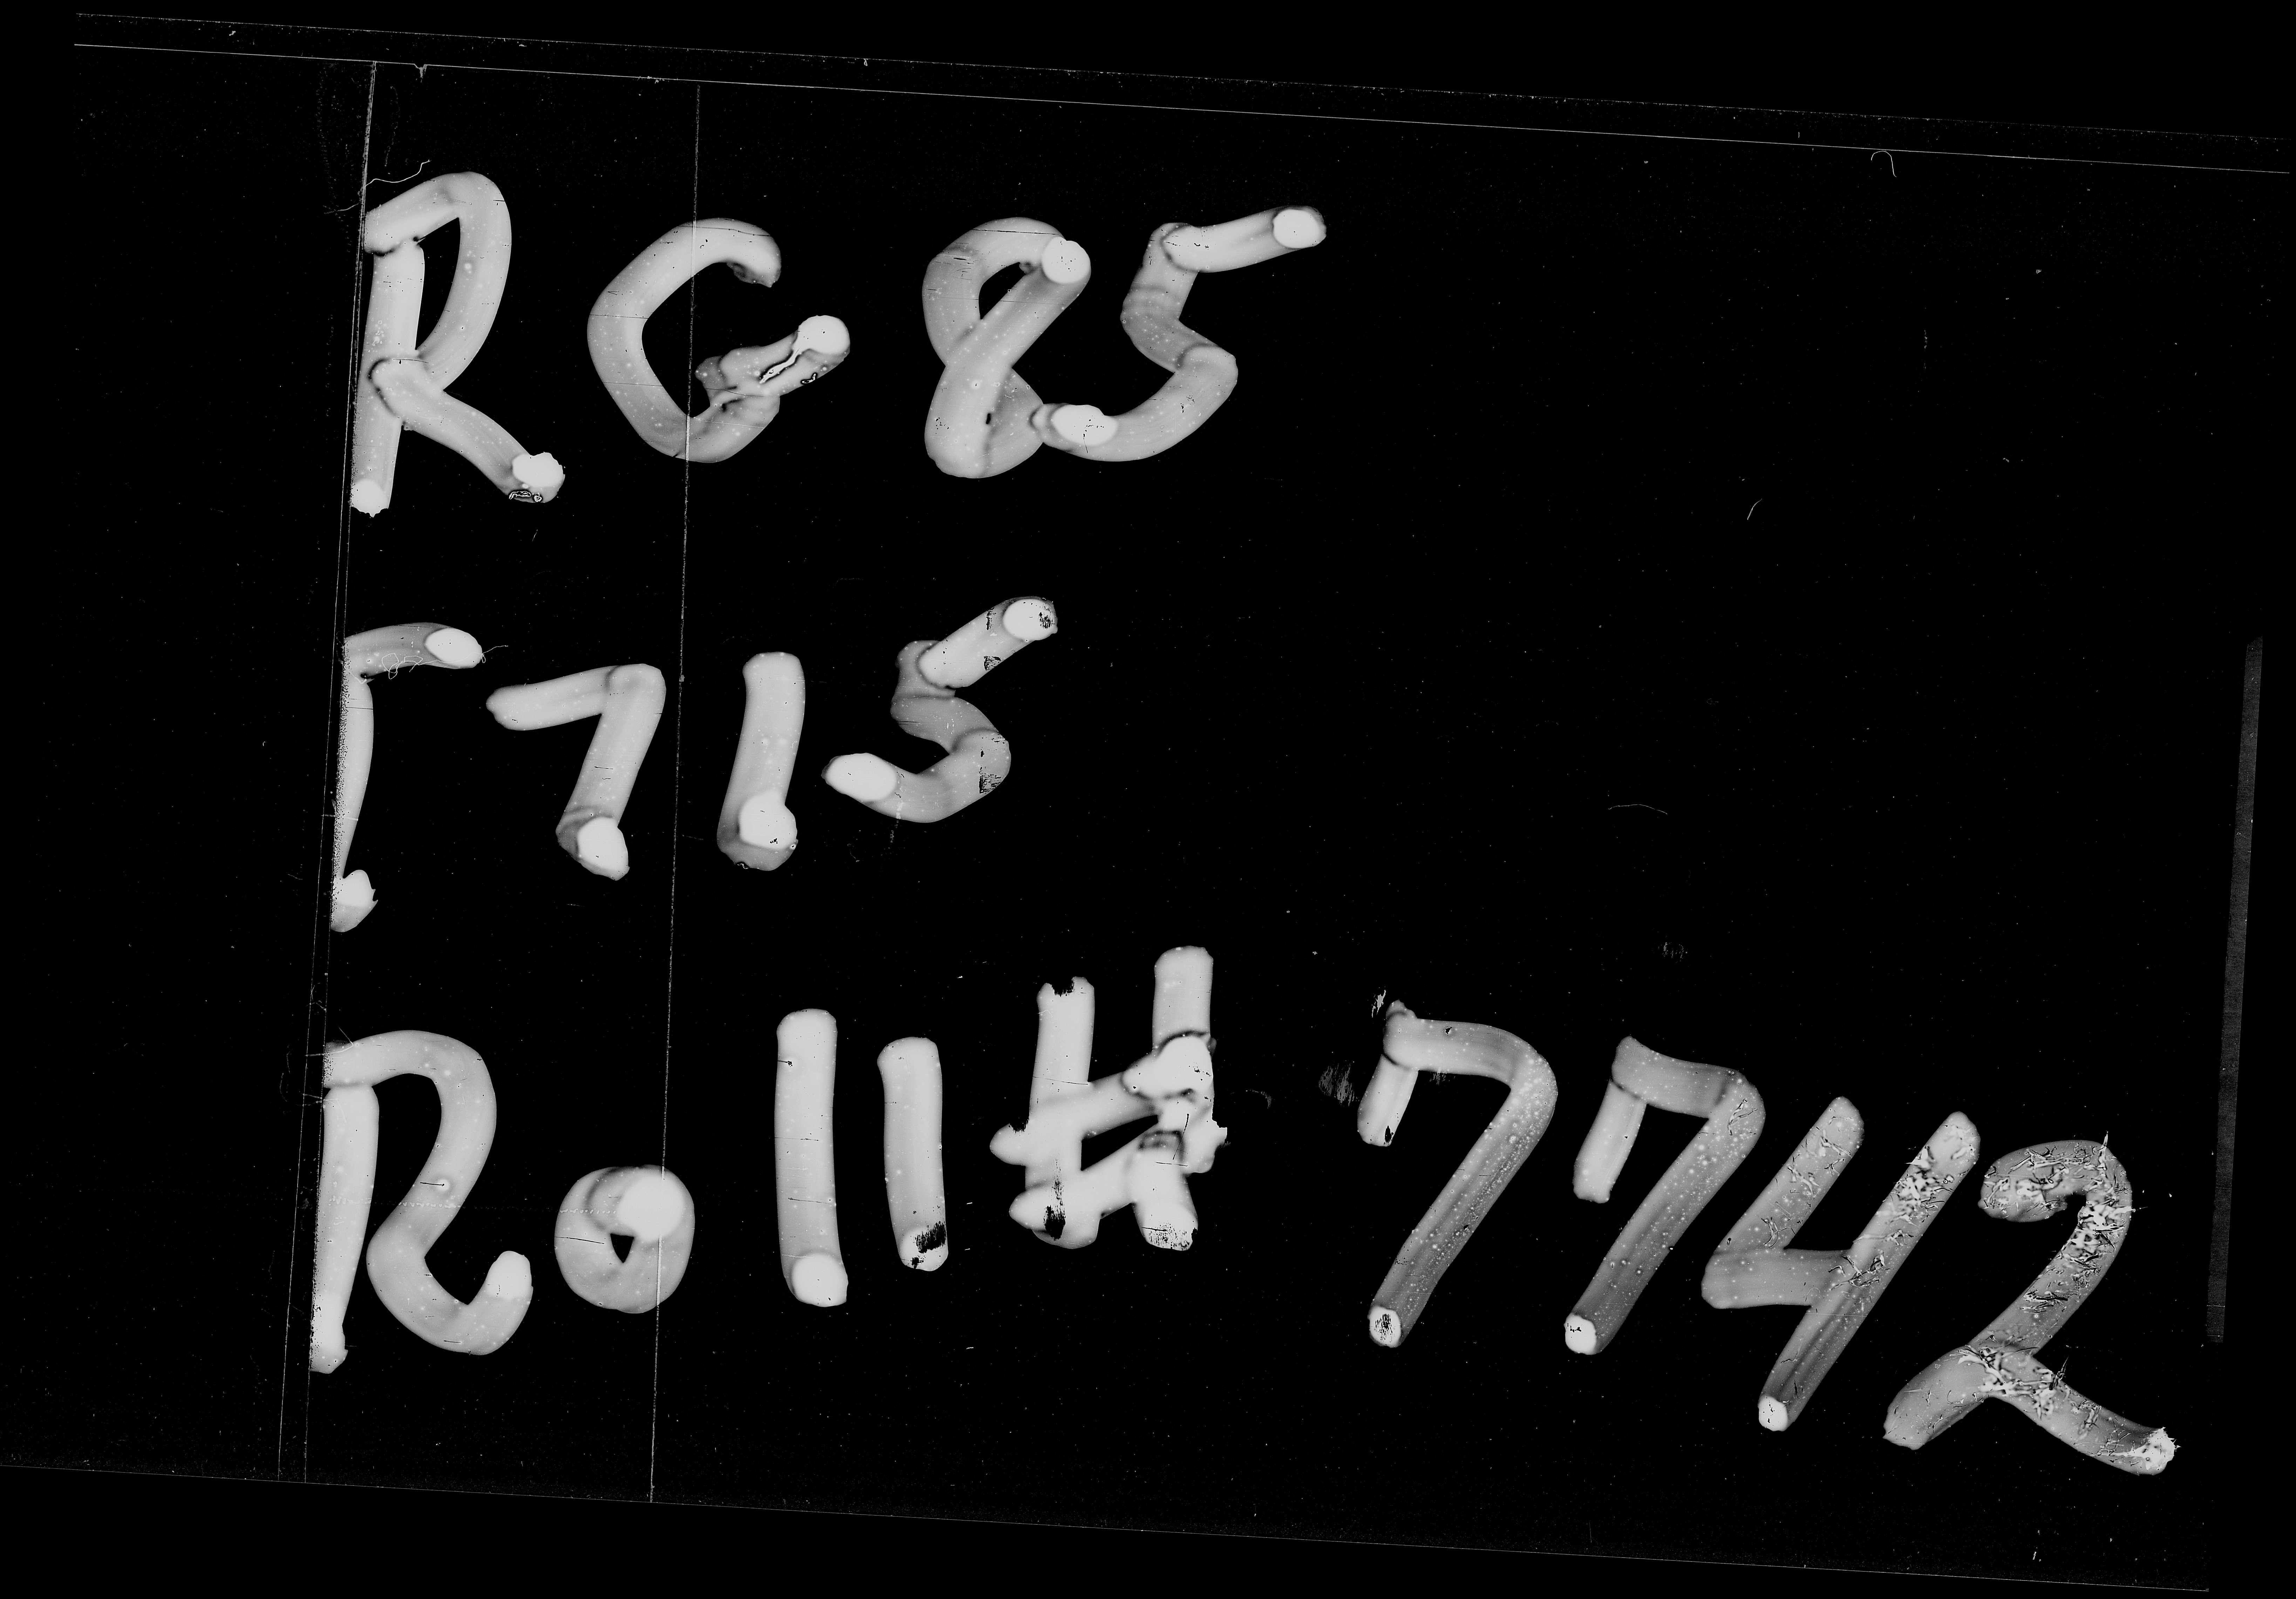 RG 85
T715
Roll# 7742